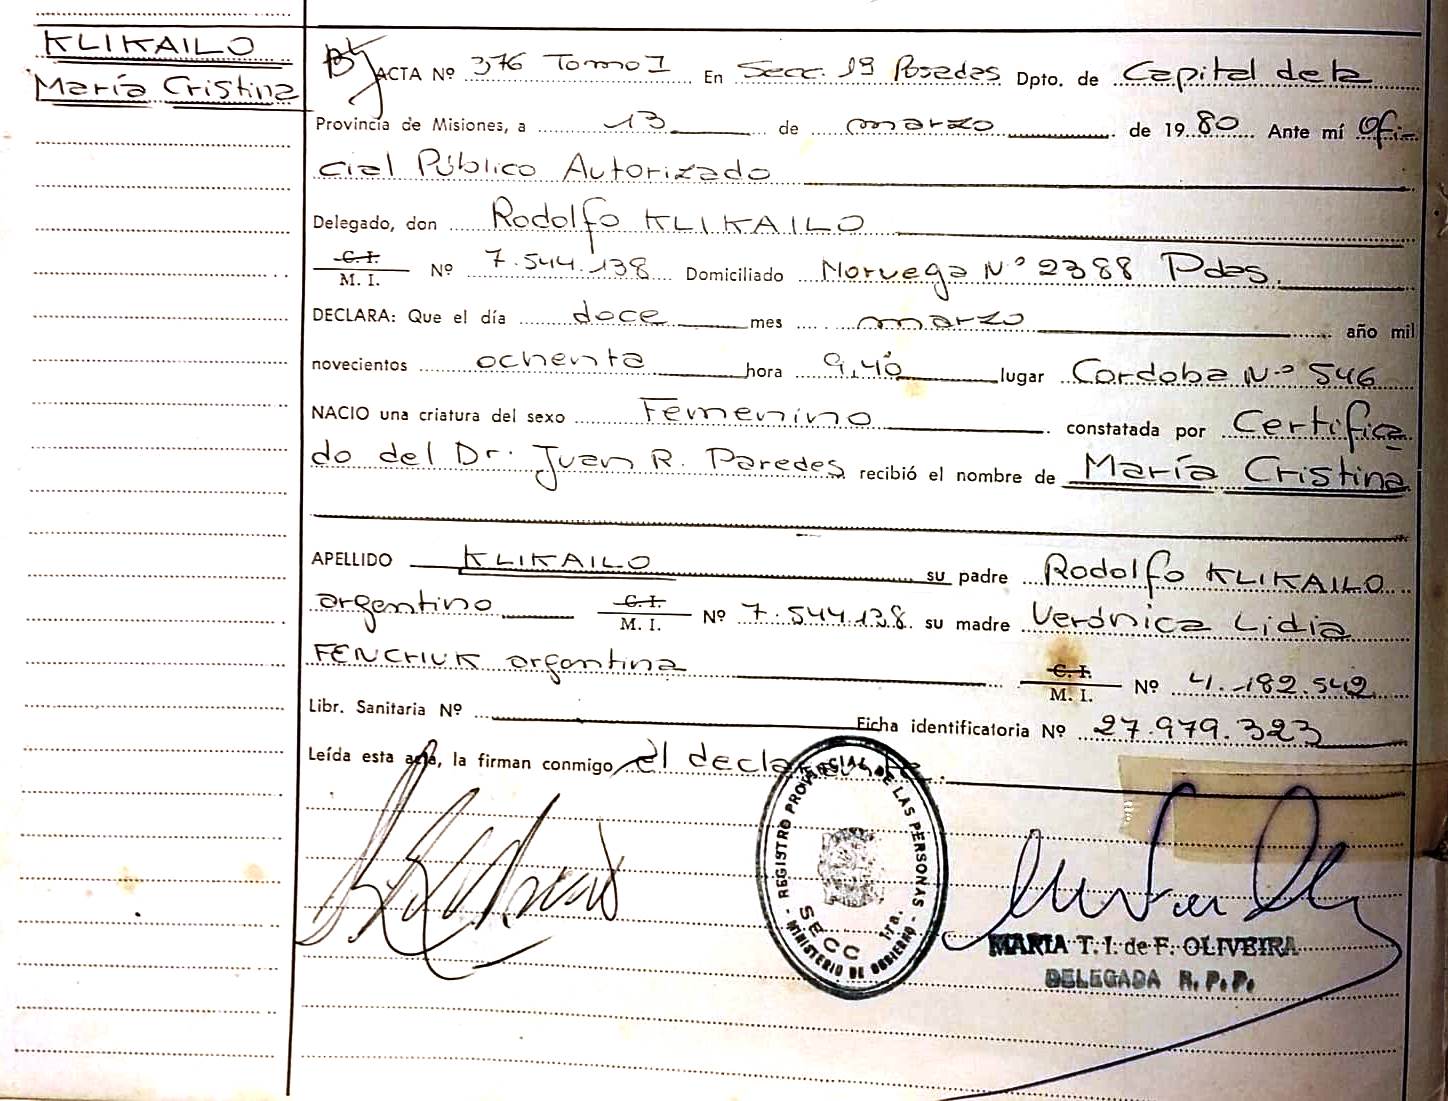 KLIKAILO
María Cristina
ACTA Nº 376 Tomo I En Secc. 1ª Posadas Dpto. de Capital de la
Provincia de Misiones, a 13 de marzo de 1980 Ante mí Ofi-
cial Público Autorizado
Delegado, don Rodolfo KLIKAILO
C. I.
M. I. Nº 7.544.138 Domiciliado Noruega Nº 2388 Pdas.
DECLARA: Que el día doce mes marzo año mil
novecientos ochenta hora 9,40 lugar Cordoba Nº 546
NACIO una criatura del sexo Femenino constatada por Certifica
do del Dr. Juan R. Paredes recibió el nombre de María Cristina
APELLIDO KLIKAILO su padre Rodolfo KLIKAILO
argentino C. I. M. I. Nº 7.544.138 su madre Verónica Lidia
FENCHUK argentina C. I. M. I. Nº 4.182.542
Libr. Sanitaria Nº Ficha identificatoria Nº 27.979.323
Leída esta acta, la firman conmigo el declarante.
REGISTRO PROVINCIAL DE LAS PERSONAS
SECC 1ra.
MINISTERIO DE GOBIERNO
MARIA T. I. de F. OLIVEIRA
DELEGADA R. P. P.